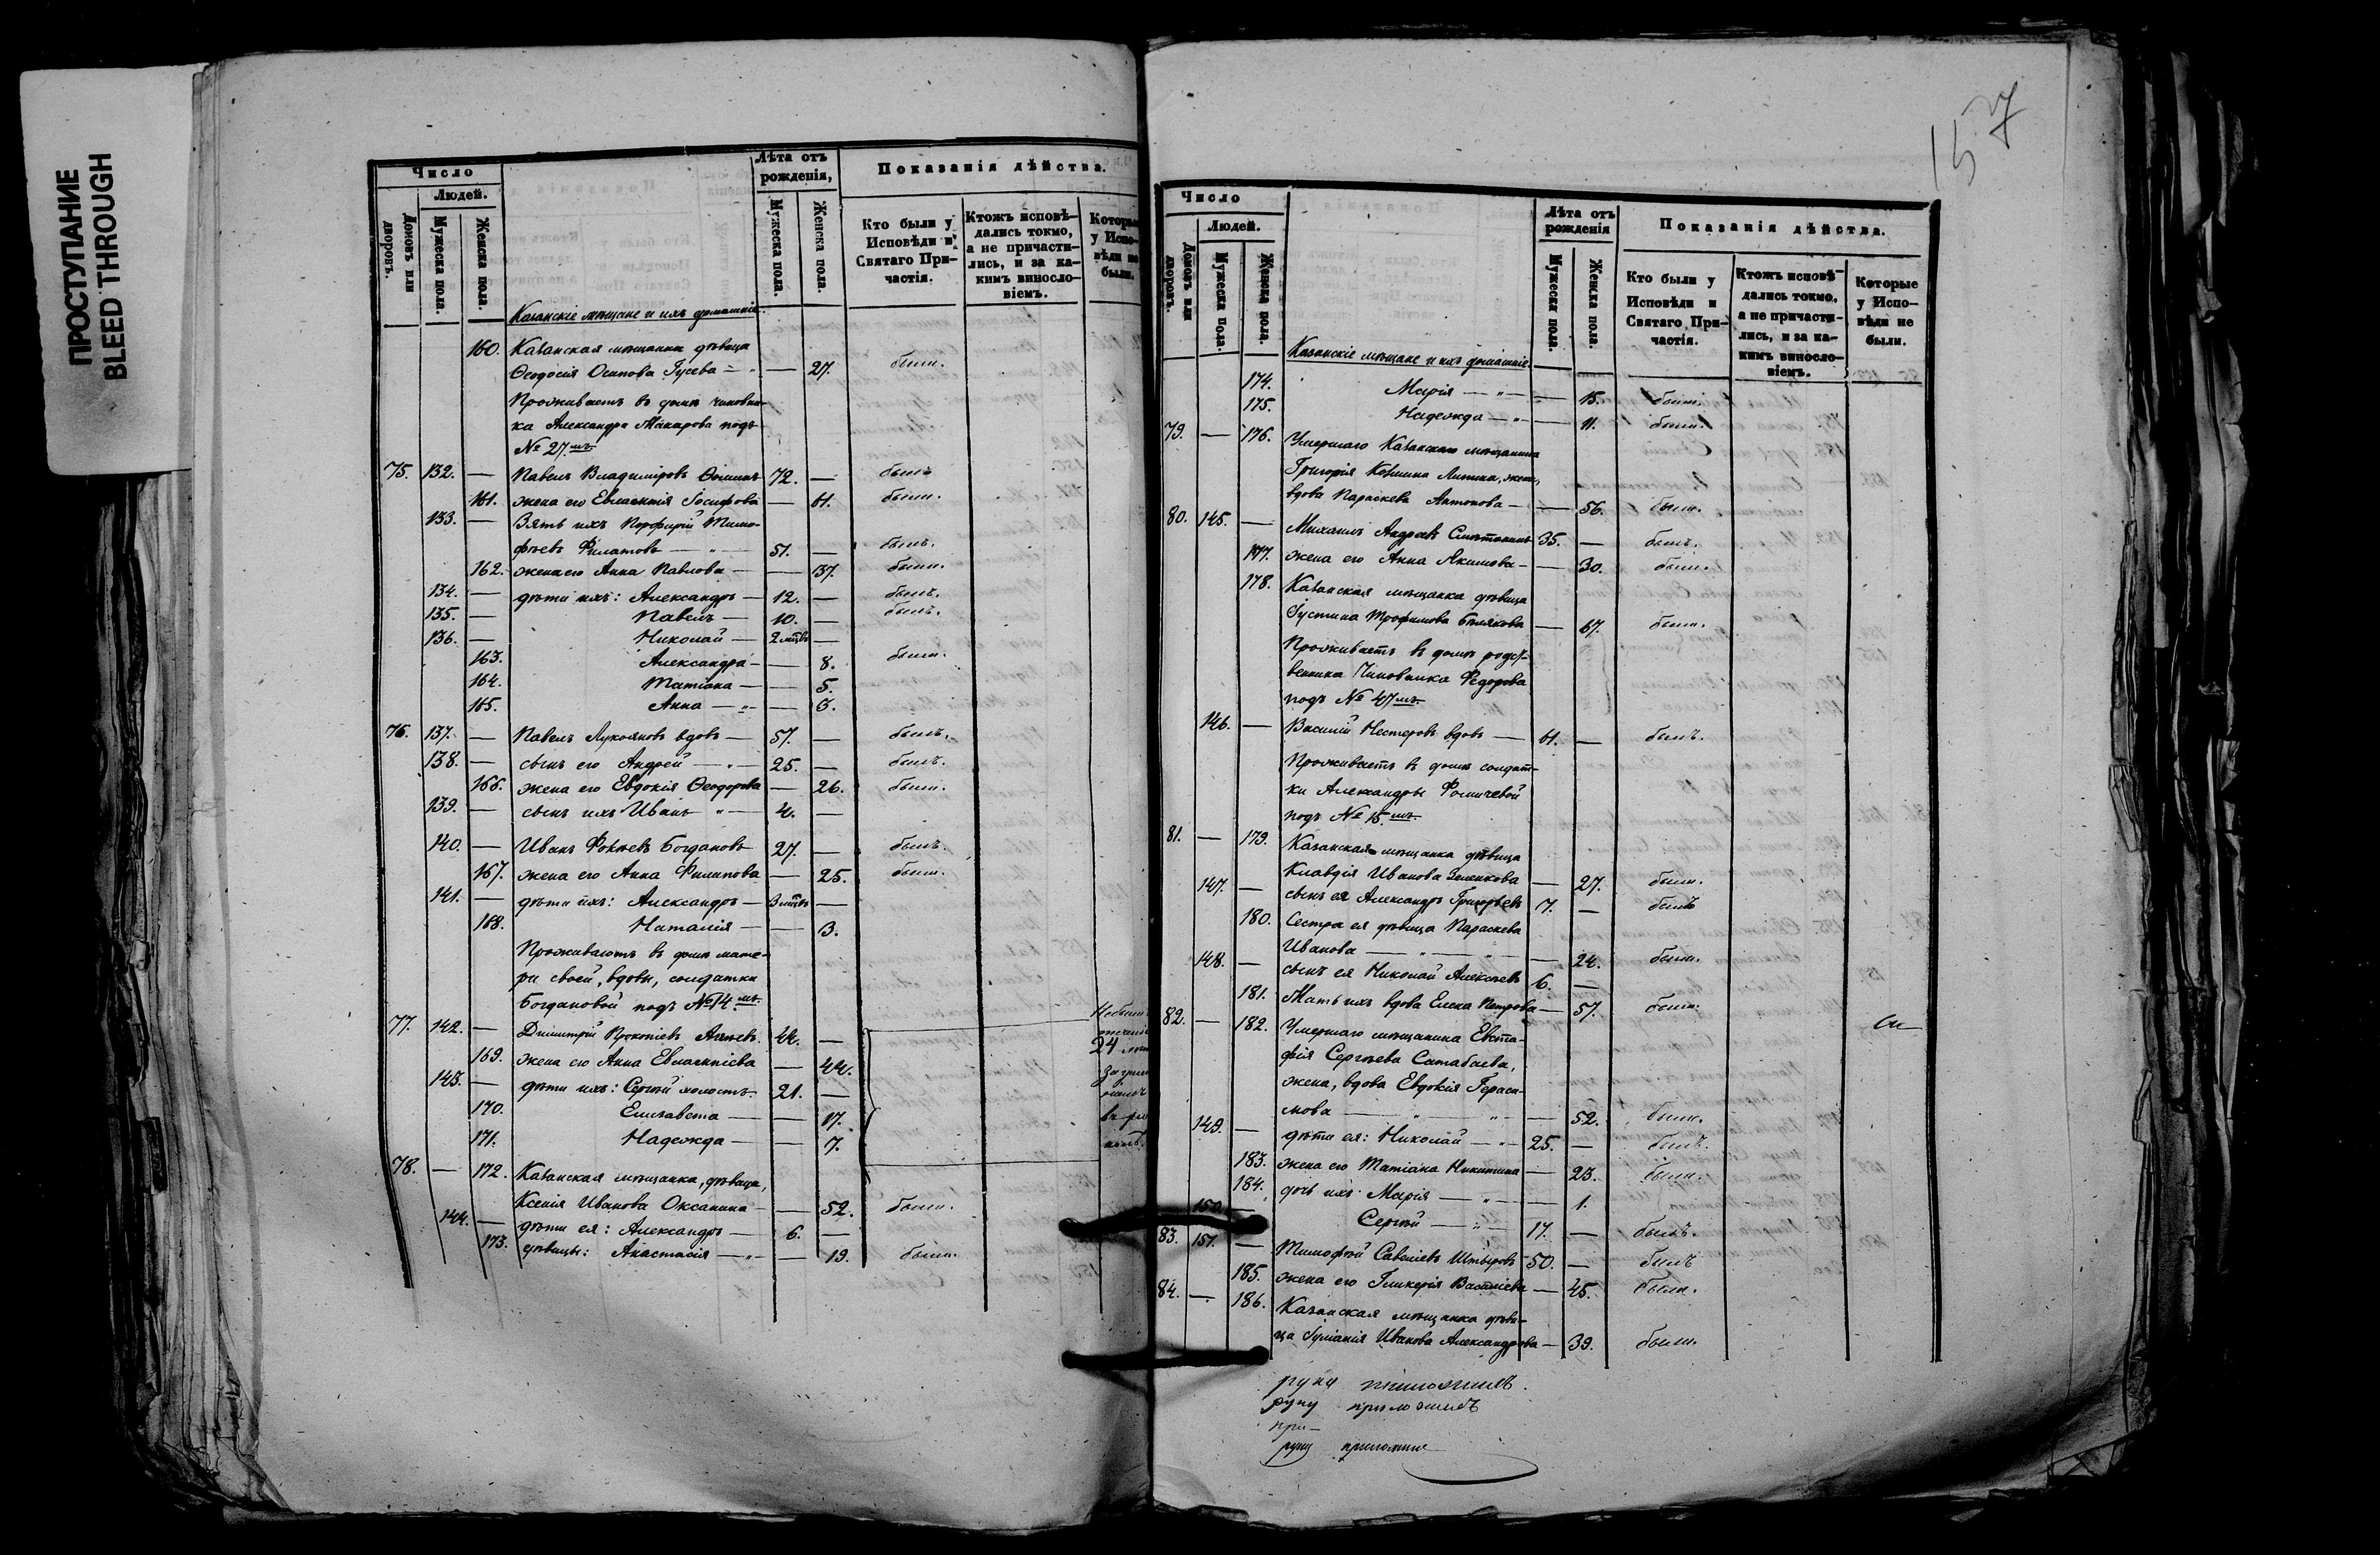 ПРОСТУПАНИЕ
BLEED THROUGH
Число
Людей.
Домовъ или дворовъ.
Мужеска пола.
Женска пола.
Лѣта отъ рожденія,
Мужеска пола.
Женска пола.
Показанія дѣйства.
Кто были у Исповѣди и Святаго Причастія.
Ктожъ исповѣдались токмо, а не причастились, и за какимъ винословіемъ.
Которые у Исповѣди не были.
Казанскіе мѣщане и ихъ домашніе
160. Казанская мѣщанка дѣвица
Ѳеодосія Осипова Гусева — " — 27. были.
Проживаетъ въ домѣ чиновни-
ка Александра Макарова подъ
№ 27.мъ
75. 132. — Павелъ Владиміровъ 72. — былъ
161. жена его Евлампія Іосифова — 61. были.
133. — Зять ихъ Порфирій Тимо-
фѣевъ Филатовъ — " — 51. — былъ.
162. жена его Анна Павлова — — 37. были.
134. — дѣти ихъ: Александръ — 12. — былъ.
135. — Павелъ — 10. — былъ.
136. — Николай — 2 мѣсв —
163. Александра — — 8. были.
164. Татіана — — 5.
165. Анна — " — — 3.
76. 137. — Павелъ Лукояновъ вдовъ — 57. — былъ.
138. — сынъ его Андрей — " — 25. — былъ.
166. жена его Евдокія Ѳеодорова — 26. были.
139. — сынъ ихъ Иванъ " — 4. —
140. — Иванъ Фокѣевъ Богдановъ 27. — былъ.
167. жена его Анна Филипова — 25. были.
141. — дѣти ихъ: Александръ — 3 мѣсв —
168. Наталія — — 3.
Проживаютъ въ домѣ мате-
ри своей, вдовы, солдатки
Богдановой подъ № 14.мъ
77. 142. — Димитрій Прокопіевъ 44. —
169. жена его Анна Евлампіева — 44.
143. — дѣти ихъ: Сергѣй холостъ. 21. —
170. Елисавета — — 17.
171. Надежда — — 7.
24
78. — 172. Казанская мѣщанка, дѣвица,
Ксенія Иванова Оксанина — — 52. были.
144. — дѣти ея: Александръ — 6. —
173. дѣвицы: Анастасія — " — — 19. были.
157
Число
Людей.
Домовъ или дворовъ.
Мужеска пола.
Женска пола.
Лѣта отъ рожденія
Мужеска пола.
Женска пола.
Показанія дѣйства.
Кто были у Исповѣди и Святаго Причастія.
Ктожъ исповѣдались токмо, а не причастились, и за какимъ винословіемъ.
Которые у Исповѣди не были.
Казанскіе мѣщане и ихъ домашніе
174. Марія — " — — 15. были.
175. Надежда — " — — 11. были.
79. — 176. Умершаго Казанскаго мѣщанина
Григорія Козмина жена,
вдова Параскева Антонова — — 56. были.
80. 145. — Михаилъ Андреевъ Сметанинъ 35. — былъ.
177. жена его Анна Якимова — — 30. были.
178. Казанская мѣщанка дѣвица
Іустина Трофимова Бѣлякова — 67. были.
Проживаетъ въ домѣ родст-
венника Чиновника Федорова
подъ № 47мъ
146. — Василій Нестеровъ вдовъ — 61. — былъ.
Проживаетъ въ домѣ солдат-
ки Александры Фомичевой
подъ № 15.мъ
81. — 179. Казанская мѣщанка дѣвица
Клавдія Иванова Зеленкова — 27. были.
147. — сынъ ея Александръ Григорьевъ 7. — былъ
180. Сестра ея дѣвица Параскева
Иванова — " — " — — 24. были.
148. — сынъ ея Николай Алексѣевъ 6. —
181. Мать ихъ вдова Елена Петрова — 57. были.
82. — 182. Умершаго мѣщанина Евста-
фія Сергѣева Сатабаева,
жена, вдова Евдокія Гераси-
мова — " — " — — 52. были.
149. — дѣти ея: Николай — " — 25. — былъ.
183. жена его Татіана Никитина — 23. были.
184. дочь ихъ: Марія — " — — 1.
150. — Сергѣй — " — 17. — былъ.
83. 151. — Тимофей Савеліевъ Штыровъ 50. — былъ
185. жена его Гликерія Василіева — 45. были.
84. — 186. Казанская мѣщанка дѣви-
ца Іуліанія Иванова Александрова — 39. были.
руку приложилъ.
руку приложилъ
при-
руку приложилъ